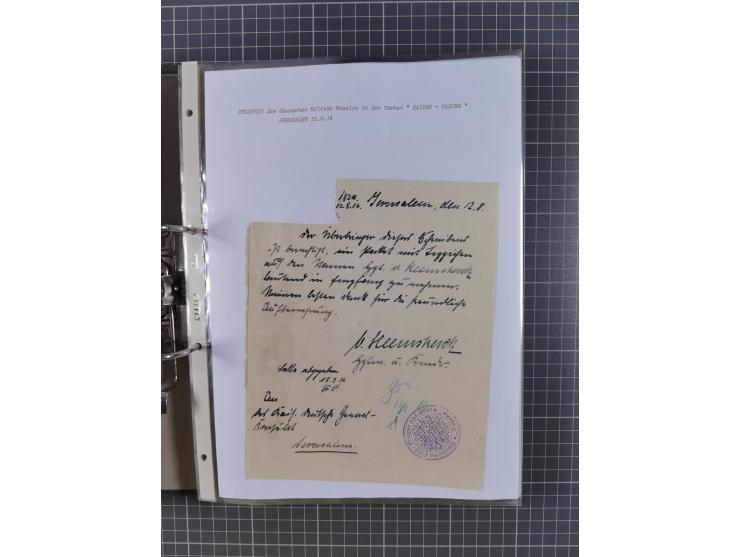 FELDPOST der deutschen Militär Mission in der Türkei " HAIDAR - PASCHA "
JERUSALEM 12.8.16
12.8.16. Jerusalem, den 12.8.
Der Überbringer dieses Schreibens
ist berechtigt, ein Paket mit
auf den Namen v. Heemskerck
lautend in Empfang zu nehmen.
Meinen besten Dank für die freundliche
Aufbewahrung.
v. Heemskerck
Hptm. u.
abgegeben
12.8.16
An
das Kais. deutsche General-
Konsulat
Jerusalem.